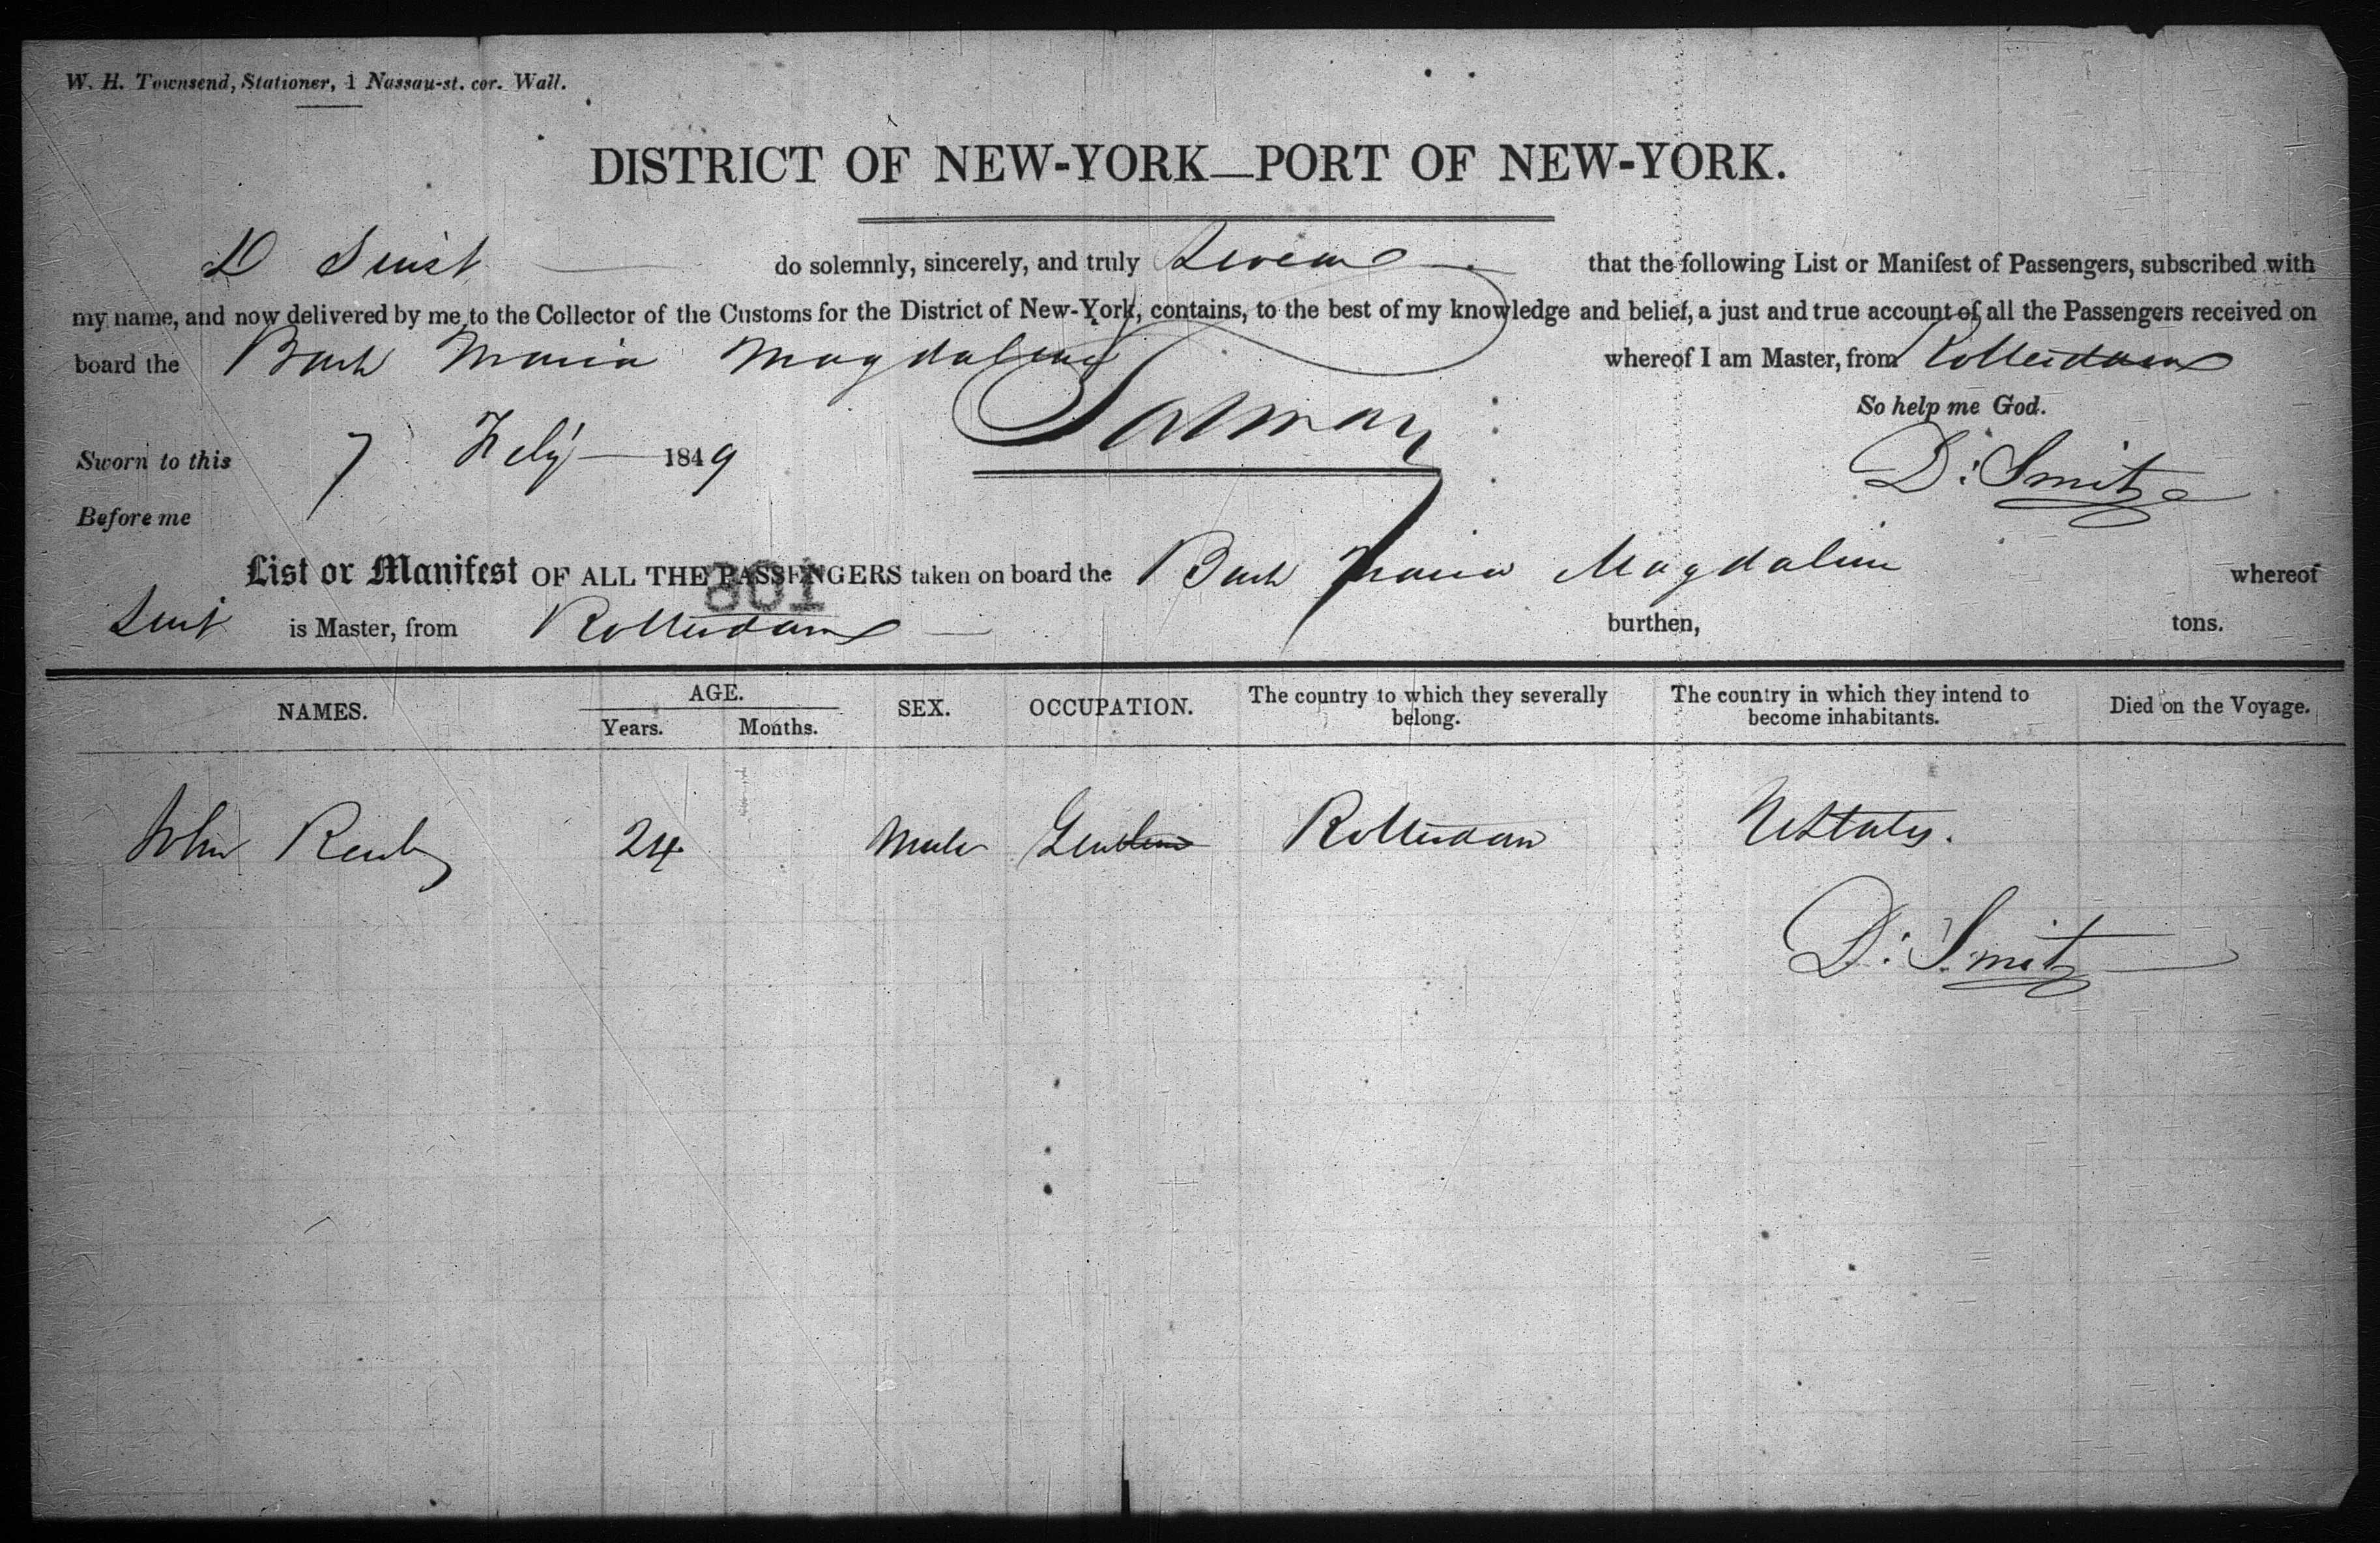 W. H. Townsend, Stationer, 1 Nassau-st. cor. Wall.
DISTRICT OF NEW-YORK—PORT OF NEW-YORK.
D Smit do solemnly, sincerely, and truly Swear that the following List or Manifest of Passengers, subscribed with
my name, and now delivered by me to the Collector of the Customs for the District of New-York, contains, to the best of my knowledge and belief, a just and true account of all the Passengers received on
board the Bark Maria Magdalena whereof I am Master, from Rotterdam
So help me God.
Sworn to this 7 Feby 1849
D: Smit
Before me
List or Manifest OF ALL THE PASSENGERS taken on board the Bark Maria Magdalena whereof
108
Smit is Master, from Rotterdam burthen, tons.
NAMES. AGE. SEX. OCCUPATION. The country to which they severally belong. The country in which they intend to become inhabitants. Died on the Voyage.
Years. Months.
John 24 Male Gentleman Rotterdam UStates.
D: Smit